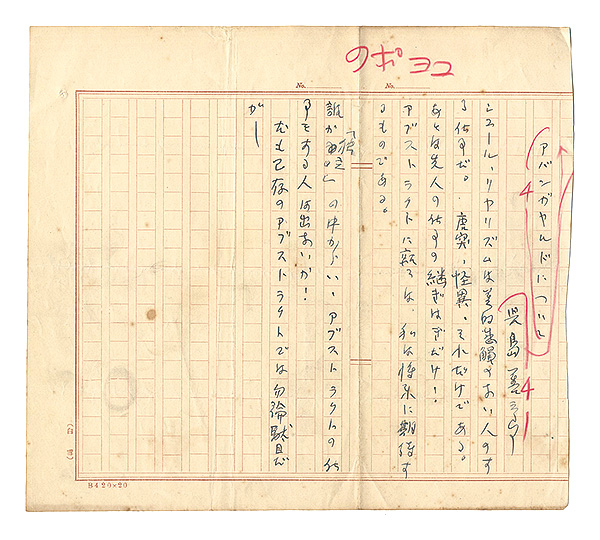 ヨコのポ
No.
No.
アバンガヤルドについて
4
4
1
児島善三郎
シュール、リヤリズムは美的基礎のない人のす
る仕事だ。唐突、怪異、それだけである。
あとは先人の仕事の継ぎはぎだけ！
アブストラクトに就ては、私は将来に期待す
るものである。
誰か の中からいいアブストラクトの仕
事をする人は出ないか！
尤も已存のアブストラクトでは勿論駄目だ
がー
B4 20×20